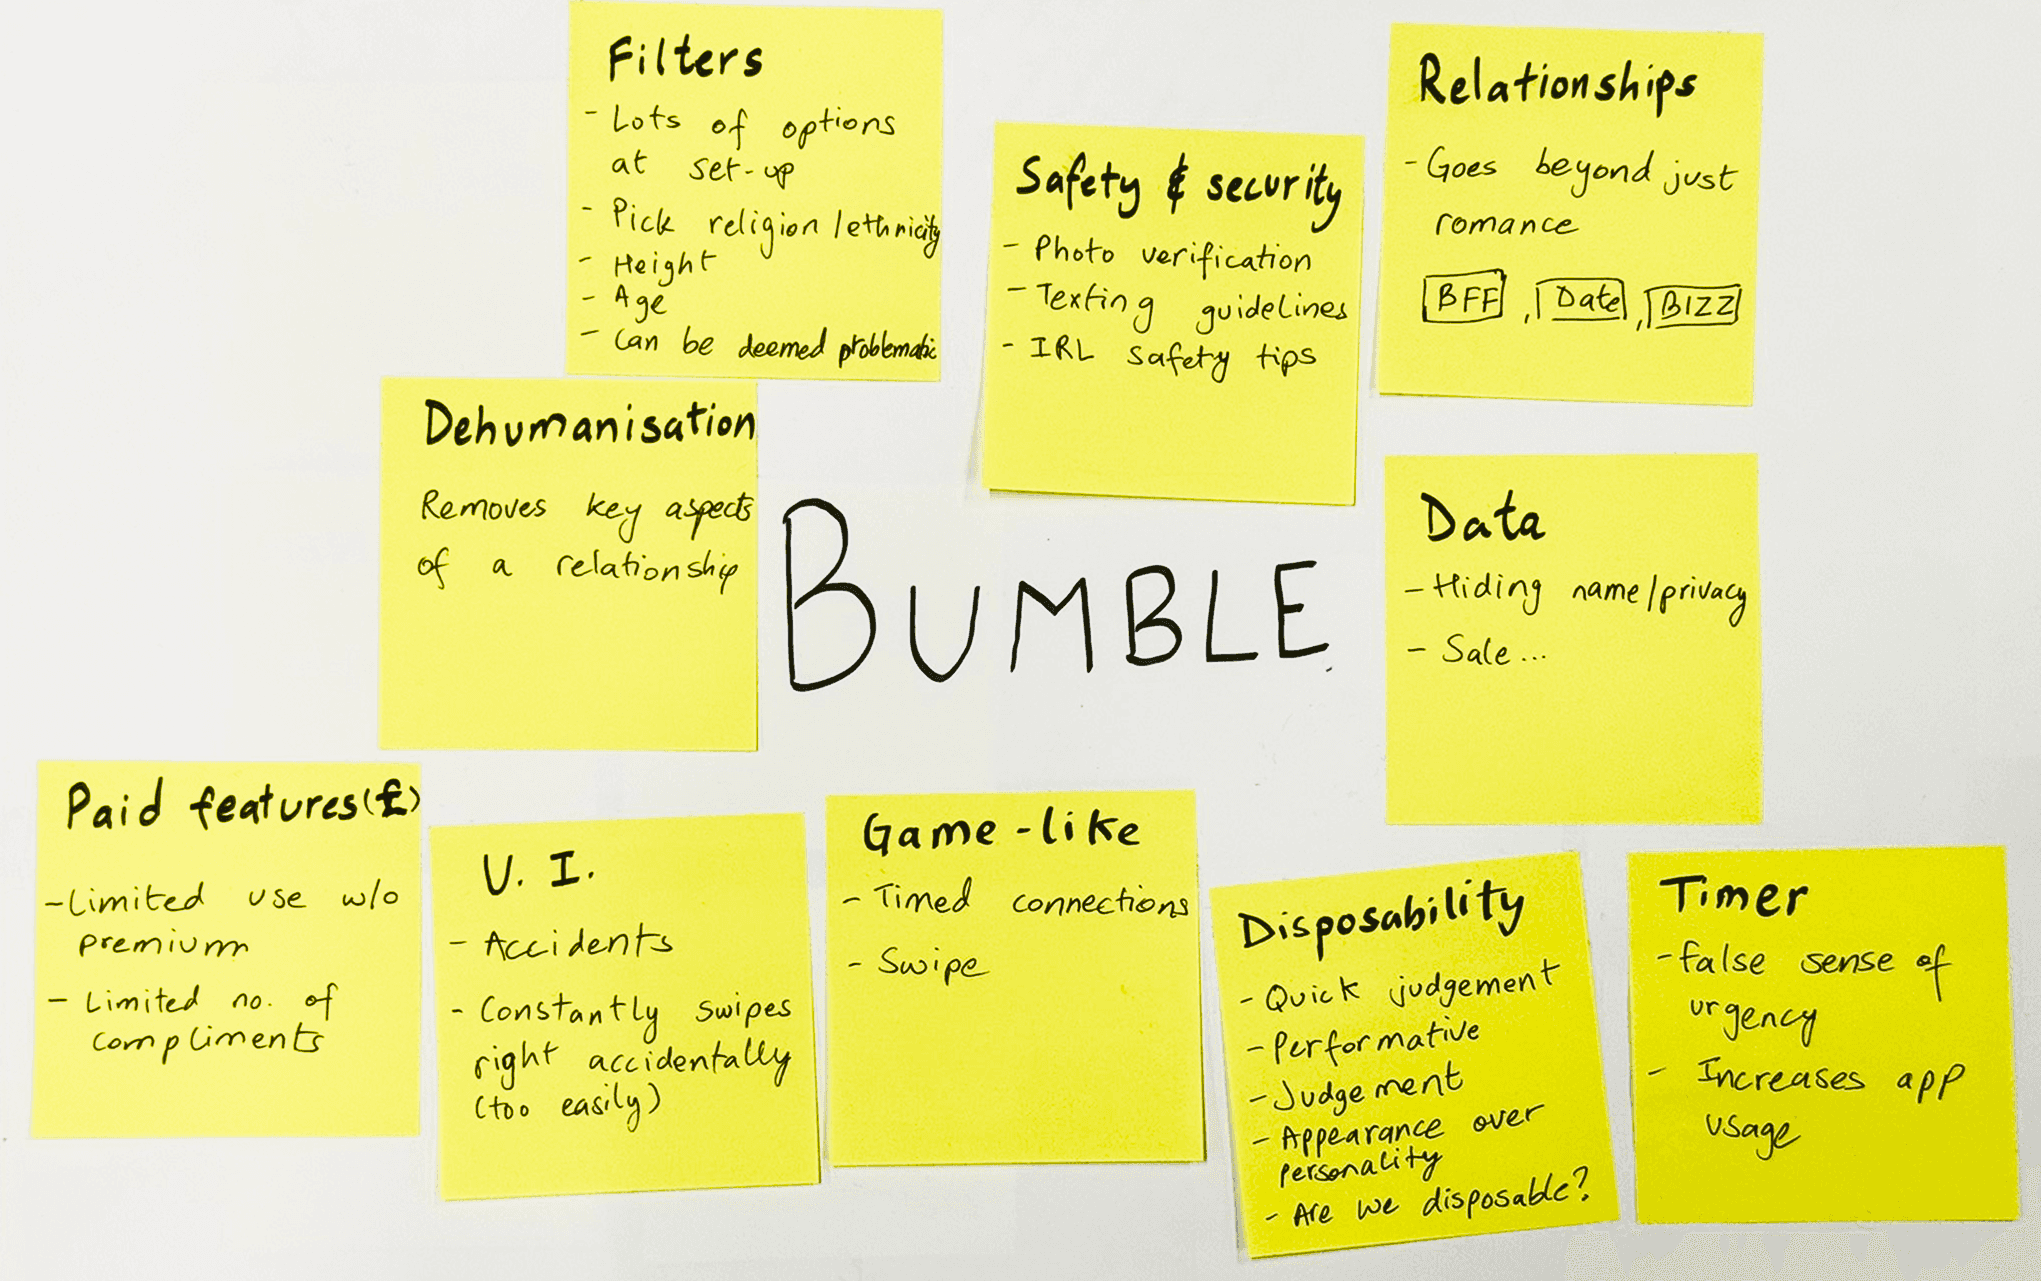 Filters
- Lots of options
at set-up
- Pick religion/ethnicity
- Height
- Age
- Can be deemed problematic
Safety & security
- Photo verification
- Texting guidelines
- IRL safety tips
Relationships
- Goes beyond just
romance
BFF, Date, BIZZ
Dehumanisation
Removes key aspects
of a relationship
BUMBLE
Data
- Hiding name/privacy
- Sale...
Paid features (£)
- Limited use w/o
premium
- Limited no. of
compliments
U. I.
- Accidents
- Constantly swipes
right accidentally
(too easily)
Game-like
- Timed connections
- Swipe
Disposability
- Quick judgement
- Performative
- Judgement
- Appearance over
personality
- Are we disposable?
Timer
- false sense of
urgency
- Increases app
usage